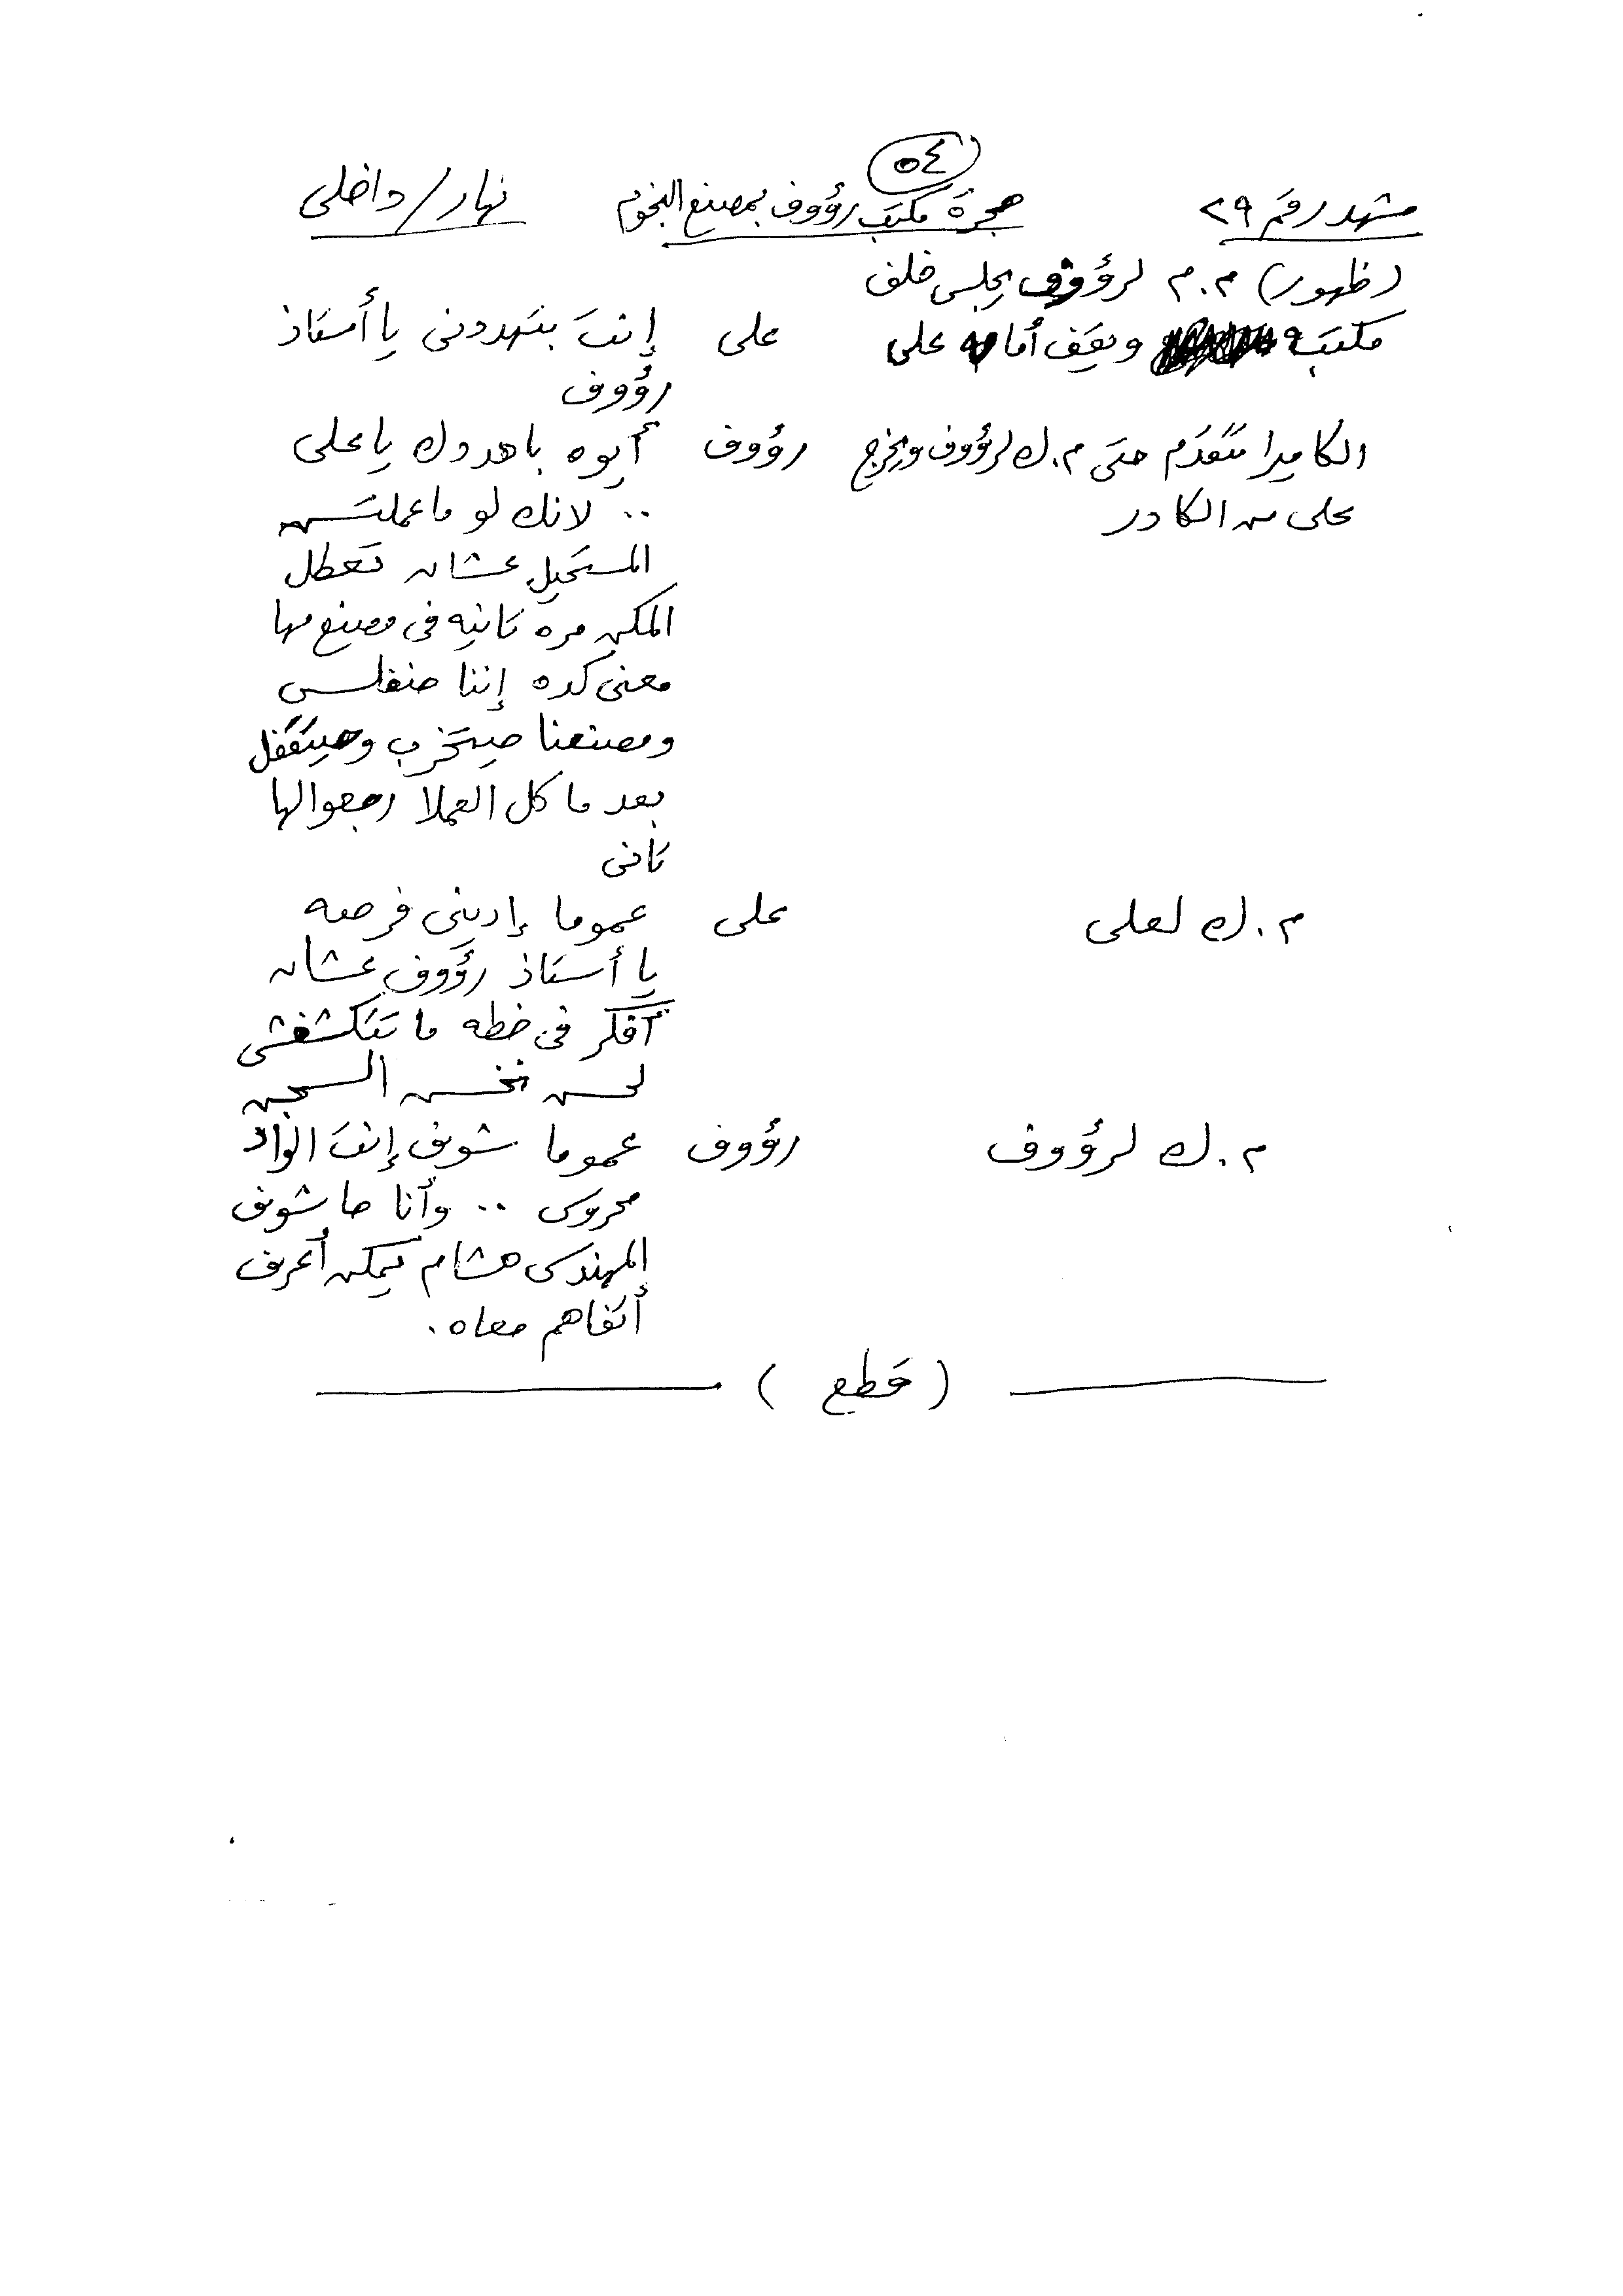 ٥٤
مشهد رقم ٢٩ حجرة مكتب رؤوف بمصنع النجوم نهار/داخلى
(ظهور) م.م لرؤوف يجلس خلف
مكتبه ويقف أمامه على على إنت بتهددنى يا أستاذ
رؤوف
الكاميرا تتقدم حتى م.ك لرؤوف ويخرج رؤوف أيوه باهددك يا على
على من الكادر .. لانك لو ما عملتش
المستحيل عشان تعطل
المكن مره تانيه فى مصنع مها
معنى كده إننا حنفلس
ومصنعنا حيتخرب وحيتقفل
بعد ما كل العملا رجعوا لها
تانى
م.ك لعلى على عموما إدينى فرصه
يا أستاذ رؤوف عشان
أفكر فى خطه ما تتكشفش
لحسن نخش السجن
م.ك لرؤوف رؤوف عموما شوف إنت الواد
محروس .. وأنا حا شوف
المهندس هشام يمكن أعرف
أتفاهم معاه.
(قطع)